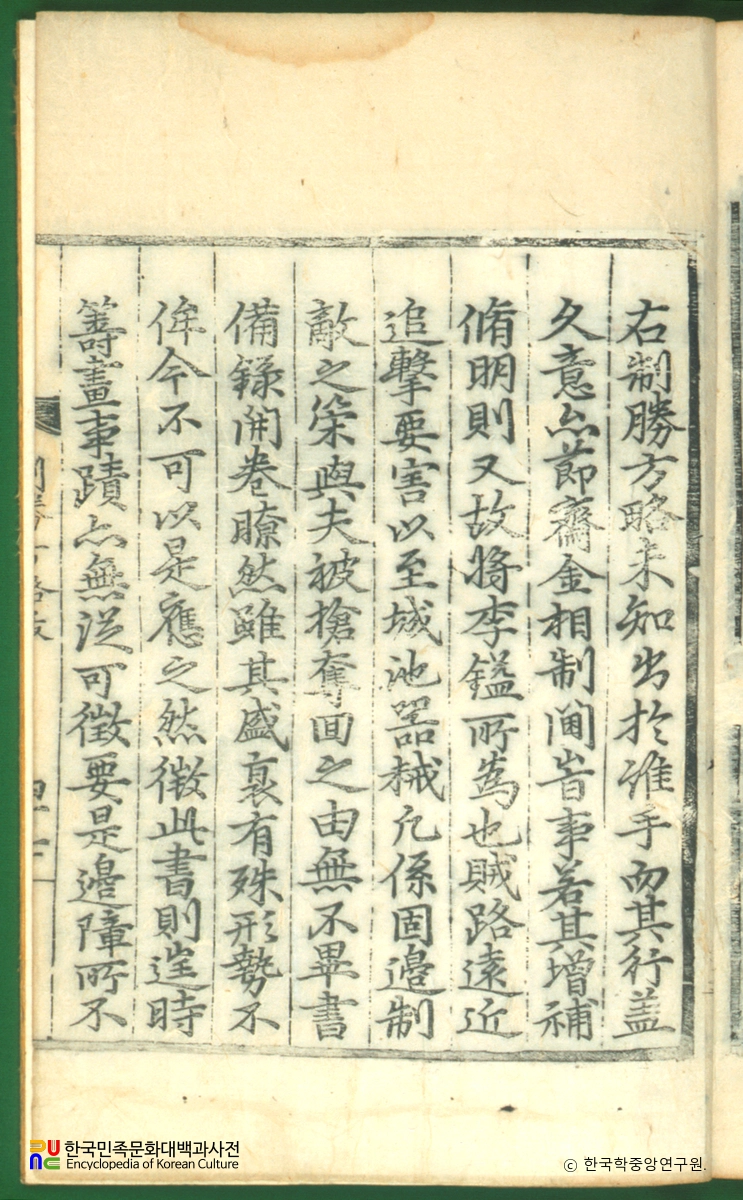 右制勝方略未知出於誰手而其行蓋
久意亦節齋金相制閫時事若其增補
脩明則又故將李鎰所爲也賊路遠近
追擊要害以至城池器械凡係固邊制
敵之策與夫被搶奪回之由無不畢書
備錄開卷瞭然雖其盛衰有殊形勢不
侔今不可以是應之然徵此書則這時
籌畫事蹟亦無從可徵要是邊障所不
한국민족문화대백과사전
Encyclopedia of Korean Culture
ⓒ 한국학중앙연구원.